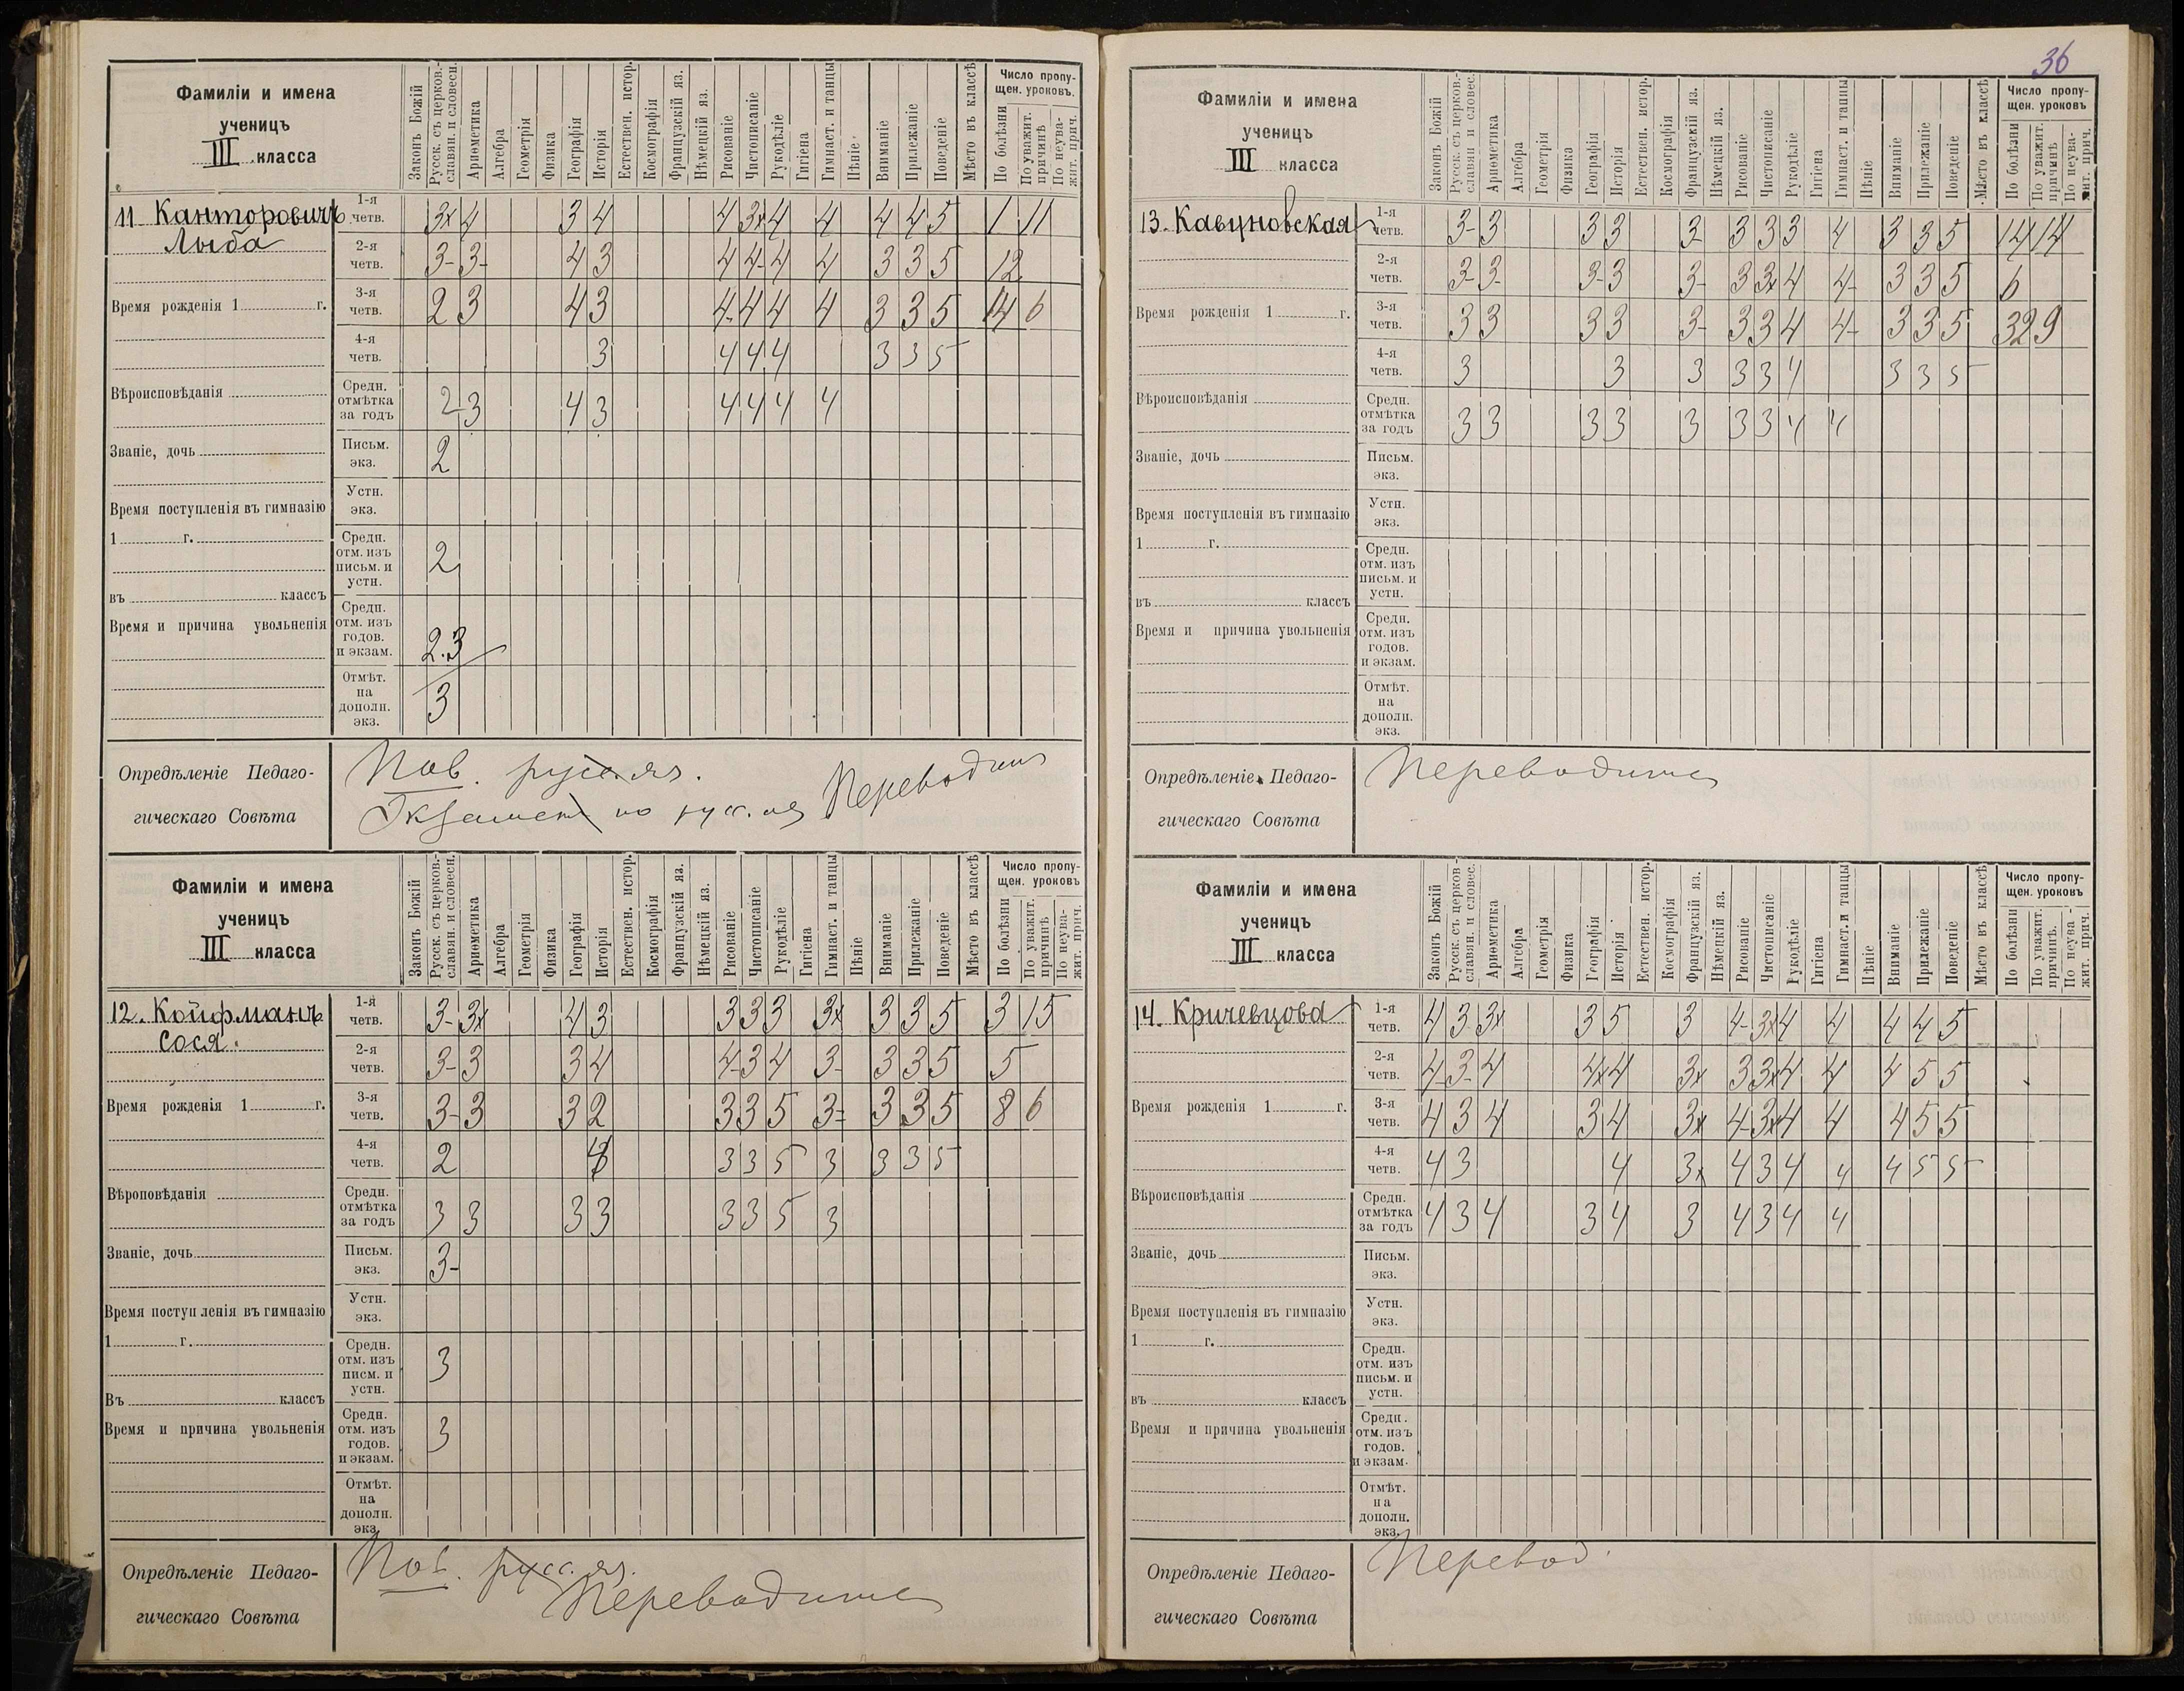 36
Фамиліи и имена
ученицъ
III класса
Законъ Божій
Русск. съ церков.-славян. и словесн.
Ариѳметика
Алгебра
Геометрія
Физика
Географія
Исторія
Естествен. истор.
Космографія
Французскій яз.
Нѣмецкій яз.
Рисованіе
Чистописаніе
Рукодѣліе
Гигіена
Гимнаст. и танцы
Пѣніе
Вниманіе
Прилежаніе
Поведеніе
Мѣсто въ классѣ
Число пропу-
щен. уроковъ.
По болѣзни
По уважит. причинѣ
По неува-жит. прич.
11 Канторовичъ
Лыба
1-я четв. 3x 4 3 4 4 3x 4 4 4 4 5 1 11
2-я четв. 3- 3- 4 3 4 4- 4 4 3 3 5 12
Время рожденія 1 г.
3-я четв. 2 3 4 3 4- 4 4 4 3 3 5 14 6
4-я четв. 3 4 4 4 3 3 5
Вѣроисповѣданія
Средн. отмѣтка за годъ 2 3 4 3 4 4 4 4
Званіе, дочь
Письм. экз. 2
Устн. экз.
Время поступленія въ гимназію
1 г.
Средн. отм. изъ письм. и устн. 2
въ классъ
Время и причина увольненія
Средн. отм. изъ годов. и экзам. 2.3
Отмѣт. на дополн. экз. 3
Опредѣленіе Педаго-
гическаго Совѣта
Пов. русс. яз.
Экзамен по русс. яз Переводит
Фамиліи и имена
ученицъ
III класса
Законъ Божій
Русск. съ церков.-славян. и словесн.
Ариѳметика
Алгебра
Геометрія
Физика
Географія
Исторія
Естествен. истор.
Космографія
Французскій яз.
Нѣмецкій яз.
Рисованіе
Чистописаніе
Рукодѣліе
Гигіена
Гимнаст. и танцы
Пѣніе
Вниманіе
Прилежаніе
Поведеніе
Мѣсто въ классѣ
Число пропу-
щен. уроковъ
По болѣзни
По уважит. причинѣ
По неува-жит. прич.
12. Койфманъ
Сося.
1-я четв. 3- 3x 4 3 3 3 3 3x 3 3 5 3 15
2-я четв. 3- 3 3 4 4- 3 4 3- 3 3 5 5
Время рожденія 1 г.
3-я четв. 3- 3 3 2 3 3 5 3= 3 3 5 8 6
4-я четв. 2 3 3 5 3 3 3 5
Вѣроповѣданія
Средн. отмѣтка за годъ 3 3 3 3 3 3 5 3
Званіе, дочь
Письм. экз. 3-
Устн. экз.
Время поступленія въ гимназію
1 г.
Средн. отм. изъ писм. и устн. 3
Въ классъ
Время и причина увольненія
Средн. отм. изъ годов. и экзам. 3
Отмѣт. на дополн. экз.
Опредѣленіе Педаго-
гическаго Совѣта
Пов. русс. яз.
Переводится
Фамиліи и имена
ученицъ
III класса
Законъ Божій
Русск. съ церков.-славян и словес.
Ариѳметика
Алгебра
Геометрія
Физика
Географія
Исторія
Естествен. истор.
Космографія
Французскій яз.
Нѣмецкій яз.
Рисованіе
Чистописаніе
Рукодѣліе
Гигіена
Гимнаст. и танцы
Пѣніе
Вниманіе
Прилежаніе
Поведеніе
Мѣсто въ классѣ
Число пропу-
щен. уроковъ
По болѣзни
По уважит. причинѣ
По неува-жит. прич.
13. Кавуновская
1-я четв. 3- 3 3 3 3- 3 3 3 4 3 3 5 14 14
2-я четв. 3- 3- 3- 3 3- 3 3x 4 4- 3 3 5 6
Время рожденія 1 г.
3-я четв. 3 3 3 3 3- 3 3 4 4- 3 3 5 32 9
4-я четв. 3 3 3 3 3 4 3 3 5
Вѣроисповѣданія
Средн. отмѣтка за годъ 3 3 3 3 3 3 3 4 4
Званіе, дочь
Письм. экз.
Устн. экз.
Время поступленія въ гимназію
1 г.
Средн. отм. изъ письм. и устн.
въ классъ
Время и причина увольненія
Средн. отм. изъ годов. и экзам.
Отмѣт. на дополн. экз.
Опредѣленіе Педаго-
гическаго Совѣта
Переводится
Фамиліи и имена
ученицъ
III класса
Законъ Божій
Русск. съ церков-славян. и словес.
Ариѳметика
Алгебра
Геометрія
Физика
Географія
Исторія
Естествен. истор.
Космографія
Французскій яз.
Нѣмецкій яз.
Рисованіе
Чистописаніе
Рукодѣліе
Гигіена
Гимнаст. и танцы
Пѣніе
Вниманіе
Прилежаніе
Поведеніе
Мѣсто въ классѣ
Число пропу-
щен. уроковъ
По болѣзни
По уважит. причинѣ.
По неува-жит. прич.
14. Кричевцова
1-я четв. 4 3 3x 3 5 3 4- 3x 4 4 4 4 5
2-я четв. 4 3- 4 4x 4 3x 3 3x 4 4 4 5 5
Время рожденія 1 г.
3-я четв. 4 3 4 3 4 3x 4- 3x 4 4 4 5 5
4-я четв. 4 3 4 3x 4 3 4 4 4 5 5
Вѣроисповѣданія
Средн. отмѣтка за годъ 4 3 4 3 4 3 4 3 4 4
Званіе, дочь
Письм. экз.
Устн. экз.
Время поступленія въ гимназію
1 г.
Средн. отм. изъ письм. и устн.
въ классъ
Время и причина увольненія
Средн. отм. изъ годов. и экзам.
Отмѣт. на дополн. экз.
Опредѣленіе Педаго-
гическаго Совѣта
Перевод.